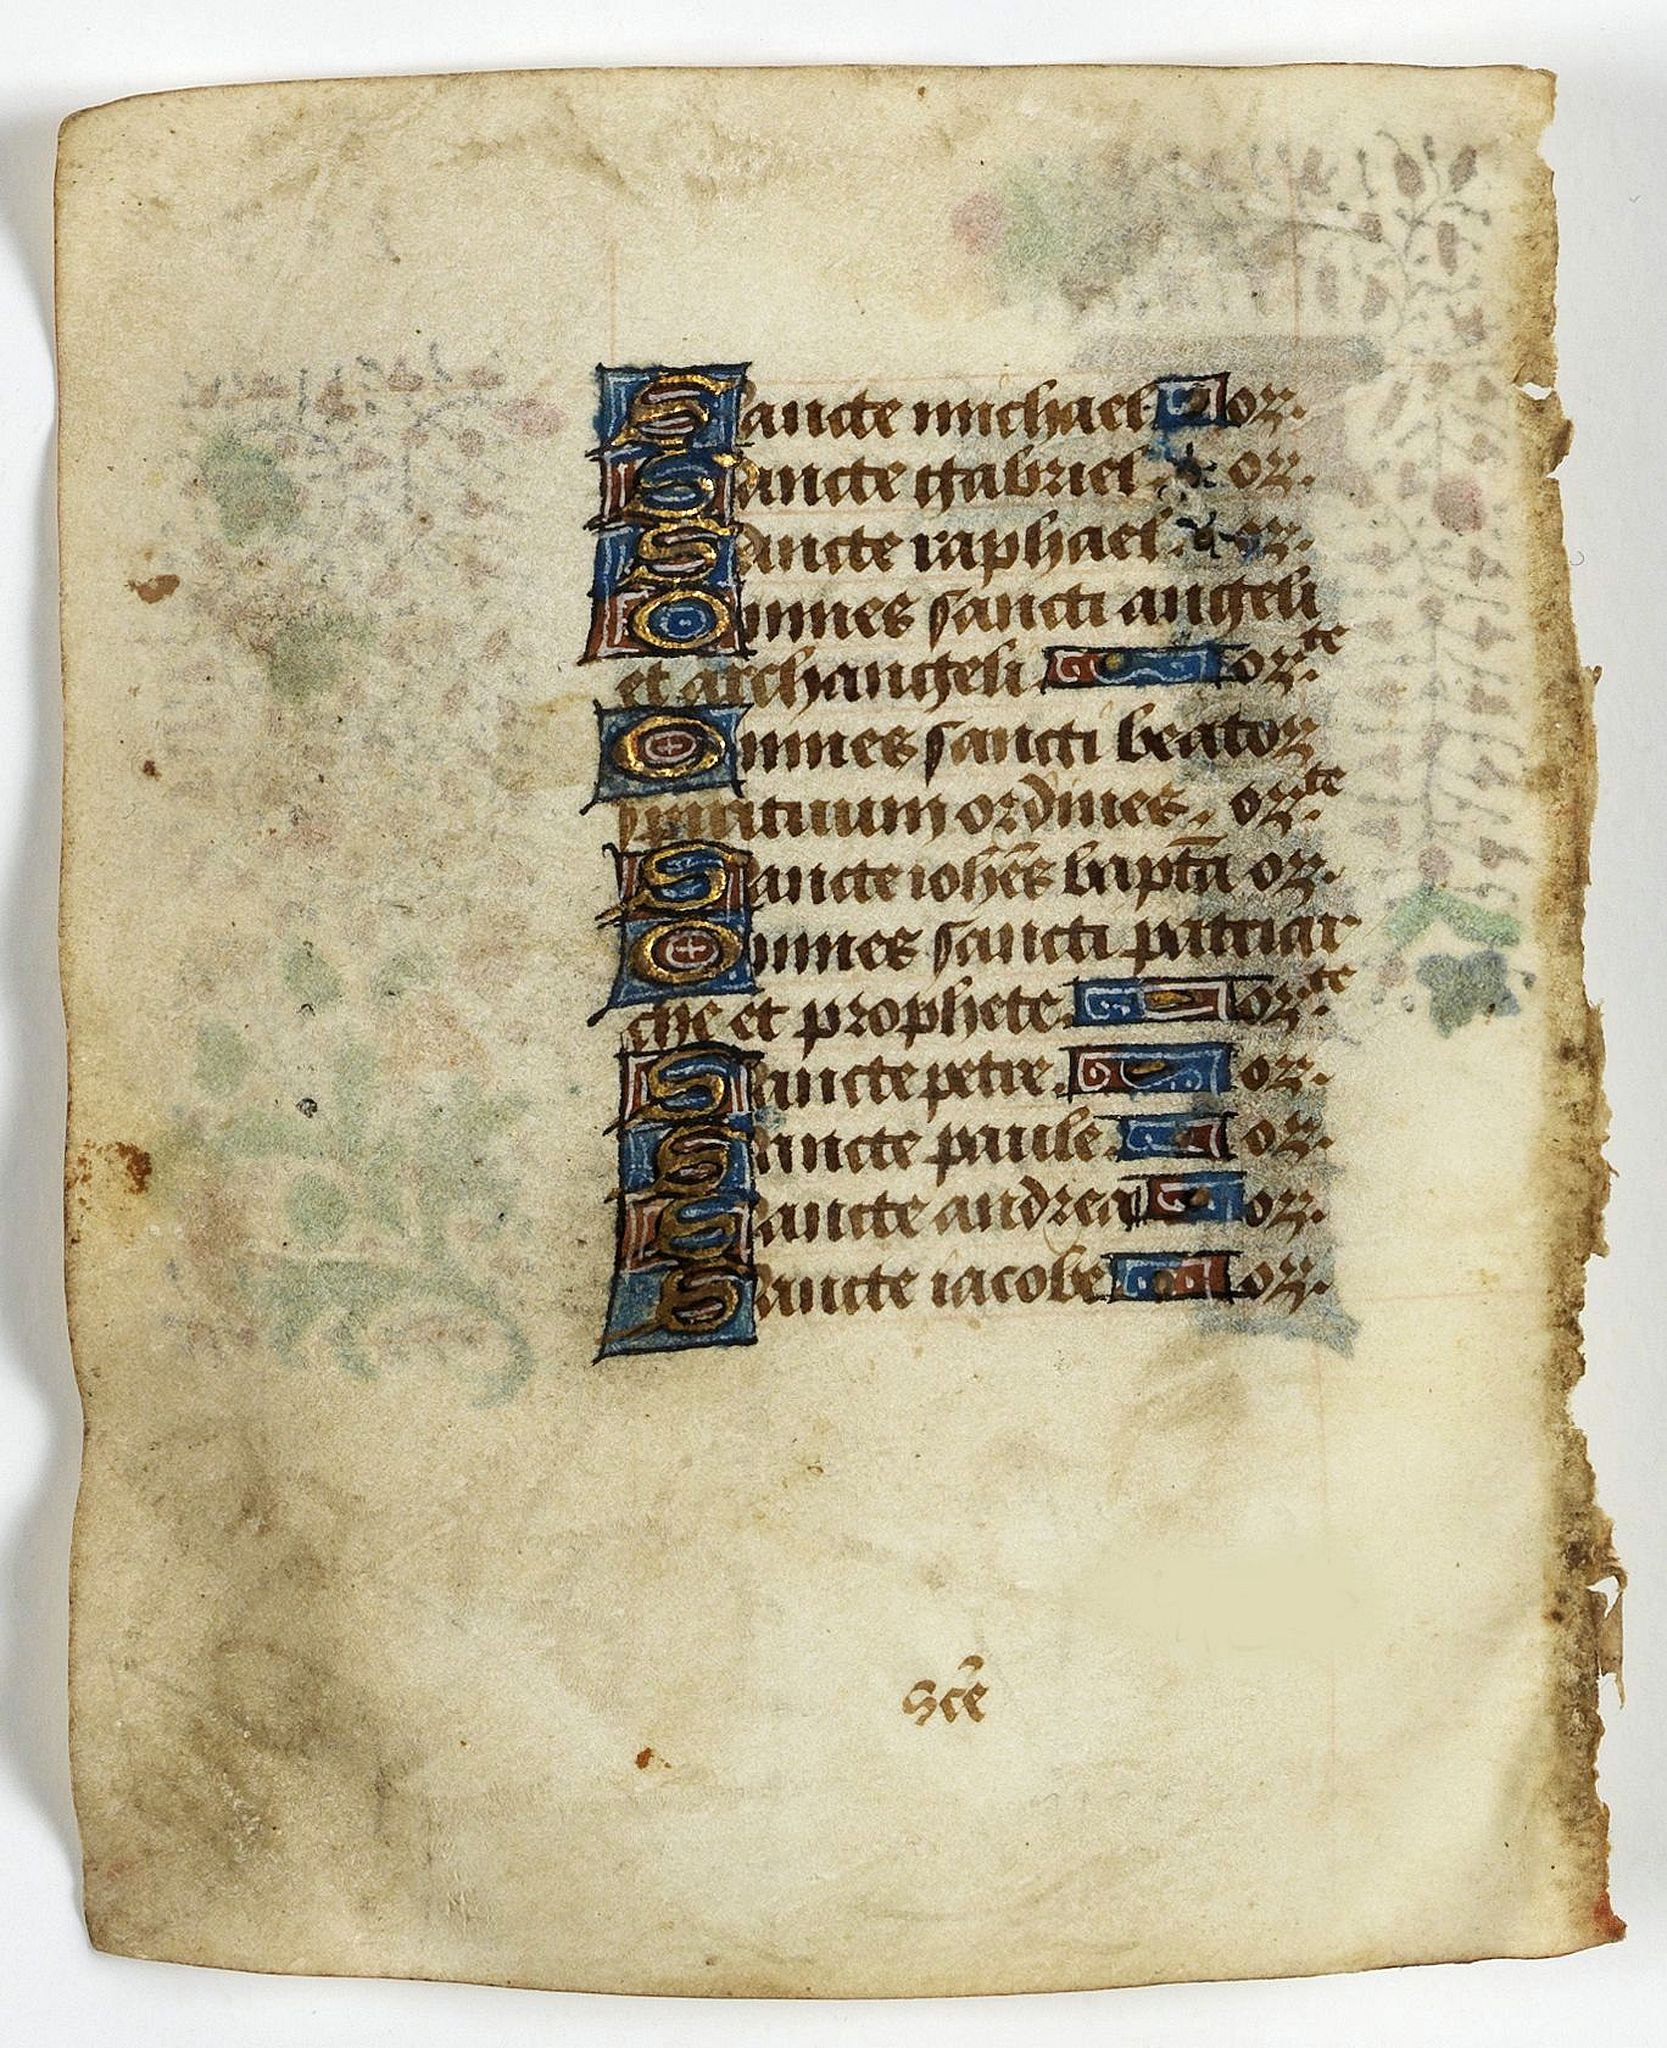 Sancte michael or.
Sancte gabriel. or.
Sancte raphael. or.
Omnes sancti angeli
et archangeli or.te
Omnes sancti beator
spirituum ordines. or.te
Sancte iohēs bapta̅ or.
Omnes sancti patriar
che et prophete. or.te
Sancte petre. or.
Sancte paule. or.
Sancte andrea or.
Sancte iacobe or.
sc̄e